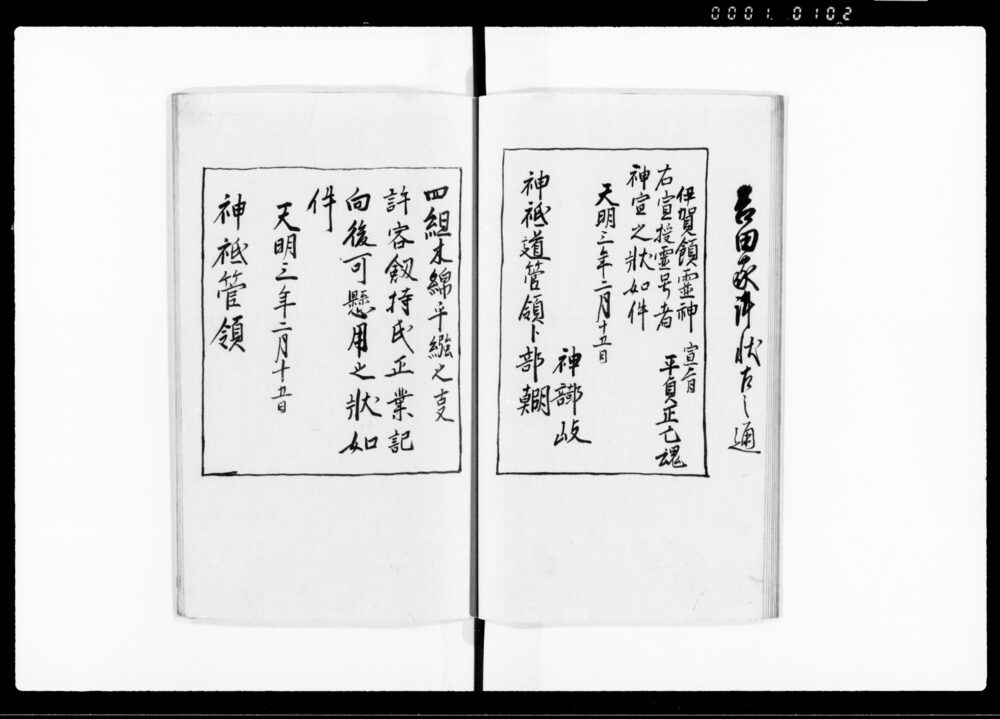 0001.0102
吉田家許状左之通
伊賀領霊神 宣旨
右宣授霊号者 平貞正亡魂
神宣之状如件
天明三年二月十五日
神部 岐
神祇道管領卜部朝
四組木綿手繦之事
許容劔持氏正業記
向後可懸用之状如
件
天明三年二月十五日
神祇管領